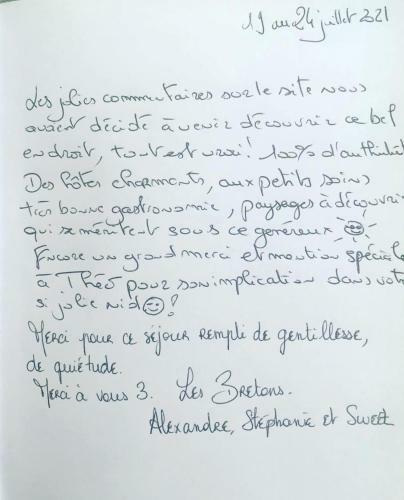 19 au 24 juillet 2021
Les jolies commentaires sur le site nous
avaient décidé à venir découvrir ce bel
endroit, tout est vrai! 100% d'authenticité
Des hôtes charmants, aux petits soins
très bonne gastronomie, paysages à découvrir
qui se méritent sous ce généreux
Encore un grand merci et mention spéciale
à Théo pour son implication dans votre
si jolie nid !
Merci pour ce séjour rempli de gentillesse,
de quiétude.
Merci à vous 3. Les Bretons.
Alexandre, Stéphanie et Sweet